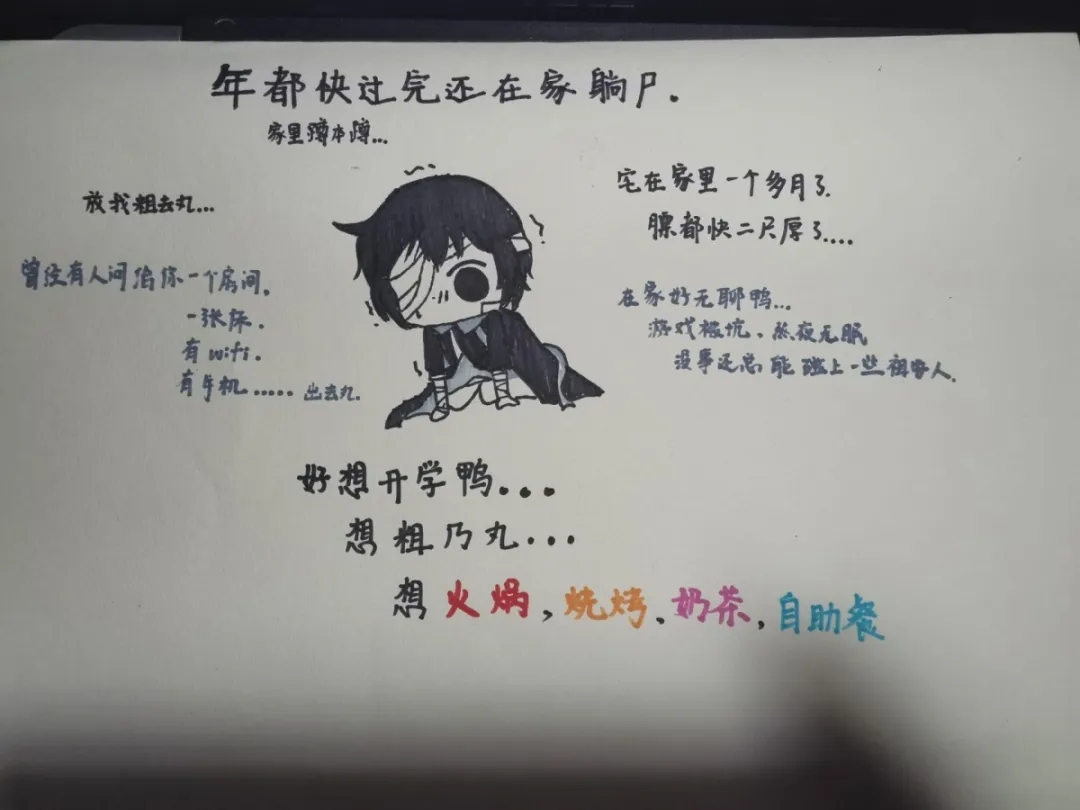 年都快过完还在家躺尸.
家里蹲本蹲...
放我粗去丸...
曾经有人问给你一个房间,
一张床.
有wifi.
有手机.....出去丸.
宅在家里一个多月了.
膘都快二尺厚了....
在家好无聊鸭...
游戏被坑、熬夜无眠
没事还总能碰上一些祖安人.
好想开学鸭...
想粗乃丸...
想火锅,烧烤、奶茶,自助餐